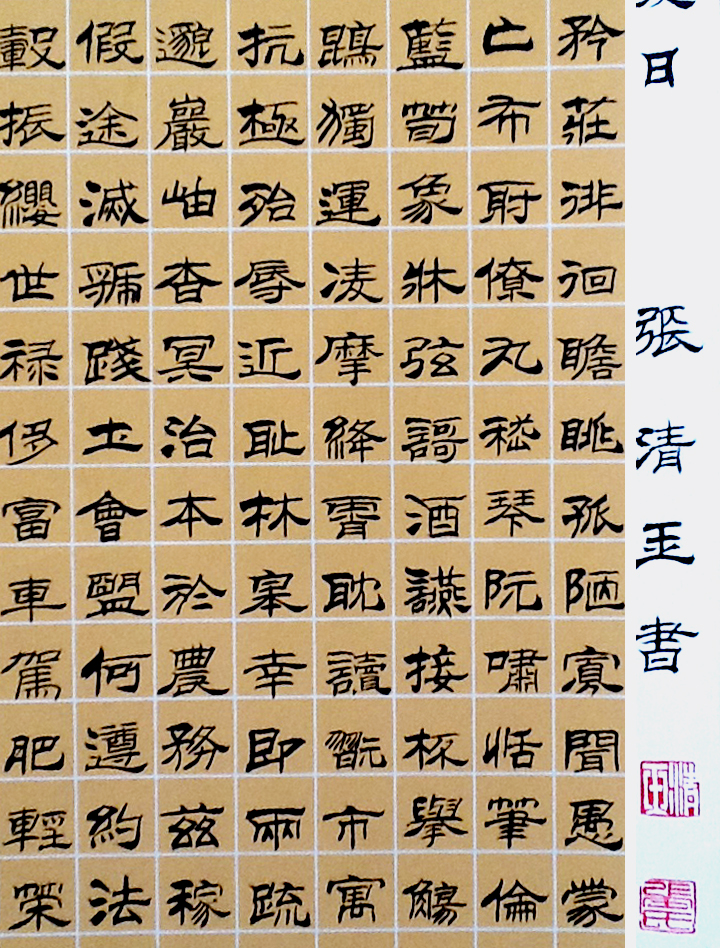 轂振纓世禄侈富車駕肥輕策
假途滅虢踐土會盟何遵約法
邈巖岫杳冥治本於農務茲稼
抗極殆辱近耻林皋幸即兩疏
鵾獨運凌摩絳霄耽讀翫市寓
藍筍象牀弦謌酒讌接杯舉觴
亡布射僚丸嵇琴阮嘯恬筆倫
矜莊徘徊瞻眺孤陋寡聞愚蒙
日 張清玉書